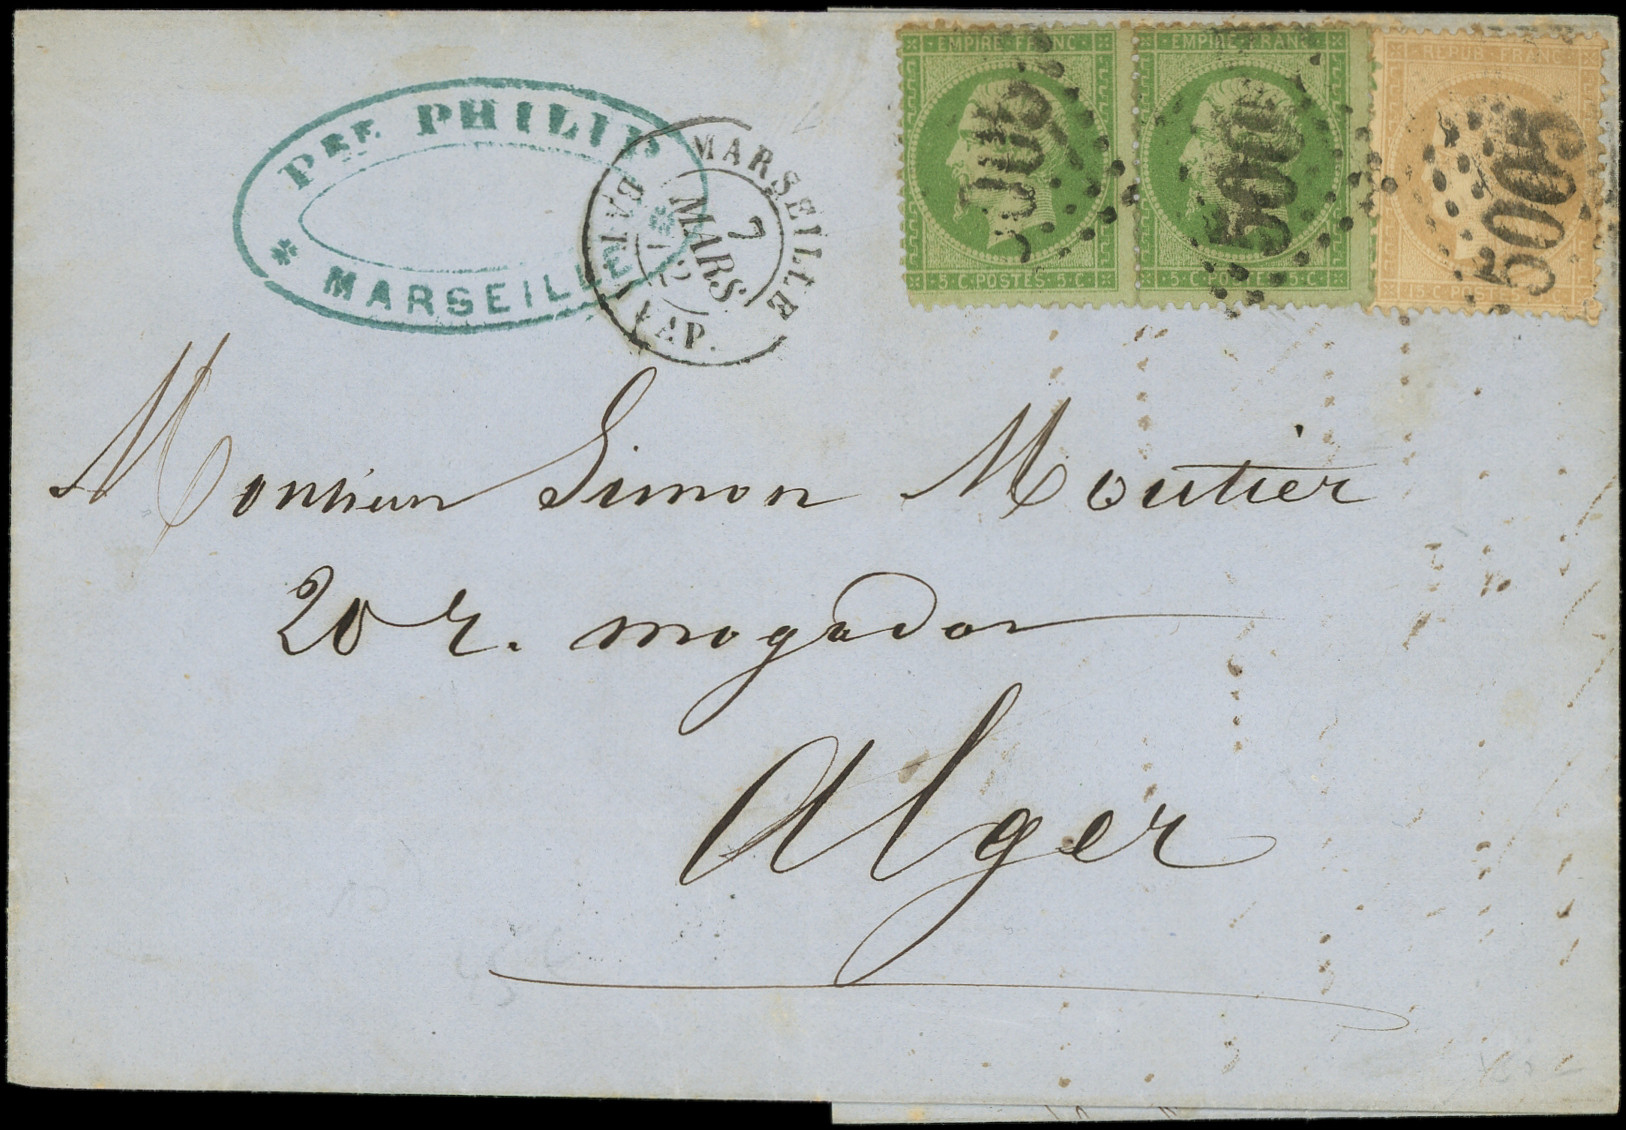 PRE PHILIP
MARSEILLE
MARSEILLE
7
MARS
72
BAT. A VAP.
EMPIRE FRANC
5·C·POSTES·5·C
EMPIRE FRANC
5·C 5·C
REPUB FRANC
15 C 15 C
5005
5005
5005
Monsieur Simon Moutier
20 r. mogador
Alger